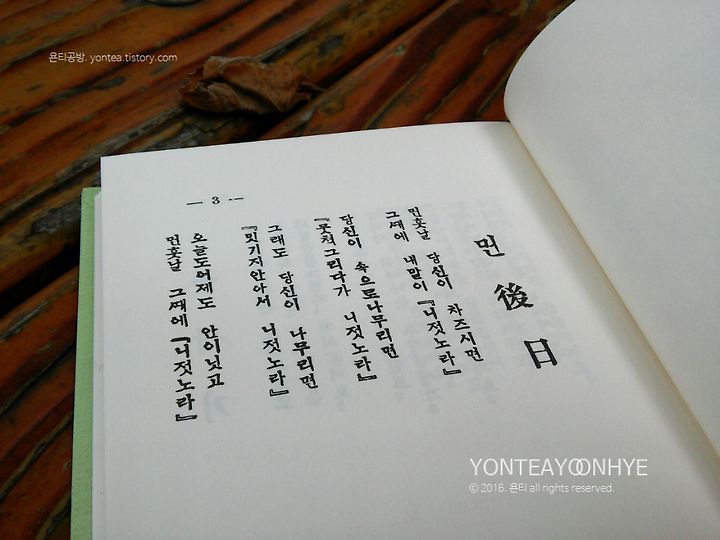 욘티공방. yontea.tistory.com
먼 後日
먼훗날 당신이 차즈시면
그ᄯᅢ에 내말이『니젓노라』
당신이 속으로나무리면
『뭇척그리다가 니젓노라』
그래도 당신이 나무리면
『밋기지안아서 니젓노라』
오늘도어제도 안이닛고
먼훗날 그ᄯᅢ에『니젓노라』
— 3 —
YONTEAYOONHYE
© 2016. 욘티 all rights reserved.